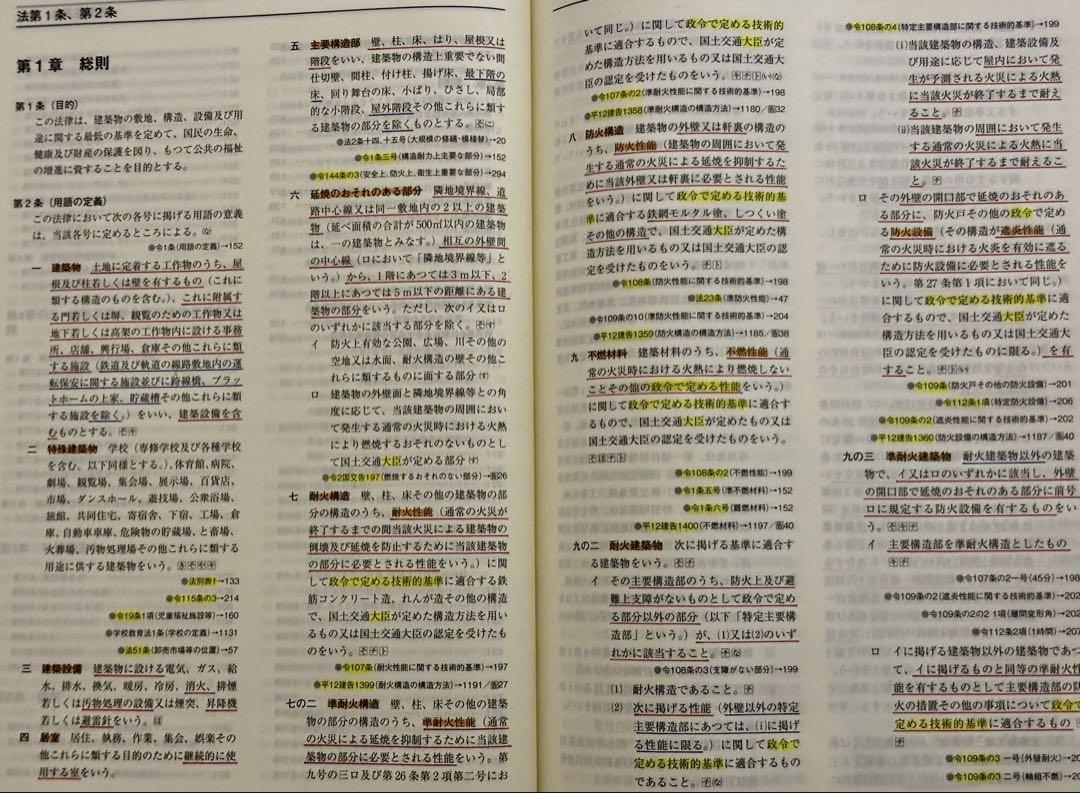 法第1条、第2条
第1章 総則
第1条(目的)
この法律は、建築物の敷地、構造、設備及び用
途に関する最低の基準を定めて、国民の生命、
健康及び財産の保護を図り、もつて公共の福祉
の増進に資することを目的とする。
第2条(用語の定義)
この法律において次の各号に掲げる用語の意義
は、当該各号に定めるところによる。
●令1条(用語の定義)→152
一 建築物 土地に定着する工作物のうち、屋
根及び柱若しくは壁を有するもの(これに
類する構造のものを含む。)、これに附属す
る門若しくは塀、観覧のための工作物又は
地下若しくは高架の工作物内に設ける事務
所、店舗、興行場、倉庫その他これらに類す
る施設(鉄道及び軌道の線路敷地内の運
転保安に関する施設並びに跨線橋、プラッ
トホームの上家、貯蔵槽その他これらに類
する施設を除く。)をいい、建築設備を含
むものとする。
二 特殊建築物 学校(専修学校及び各種学校
を含む。以下同様とする。)、体育館、病院、
劇場、観覧場、集会場、展示場、百貨店、
市場、ダンスホール、遊技場、公衆浴場、
旅館、共同住宅、寄宿舎、下宿、工場、倉
庫、自動車車庫、危険物の貯蔵場、と畜場、
火葬場、汚物処理場その他これらに類する
用途に供する建築物をいう。
●法別表1→133
●令115条の3→214
●令19条1項(児童福祉施設等)→160
●学校教育法1条(学校の定義)→1131
●法51条(卸売市場等の位置)→57
三 建築設備 建築物に設ける電気、ガス、給
水、排水、換気、暖房、冷房、消火、排煙
若しくは汚物処理の設備又は煙突、昇降機
若しくは避雷針をいう。
四 居室 居住、執務、作業、集会、娯楽その
他これらに類する目的のために継続的に使
用する室をいう。
五 主要構造部 壁、柱、床、はり、屋根又は
階段をいい、建築物の構造上重要でない間
仕切壁、間柱、付け柱、揚げ床、最下階の
床、回り舞台の床、小ばり、ひさし、局部
的な小階段、屋外階段その他これらに類す
る建築物の部分を除くものとする。
●法2条十四、十五号(大規模の修繕・模様替)→20
●令1条三号(構造耐力上主要な部分)→152
●令144条の3(安全上、防火上、衛生上重要な部分)→294
六 延焼のおそれのある部分 隣地境界線、道
路中心線又は同一敷地内の2以上の建築
物(延べ面積の合計が500㎡以内の建築物
は、一の建築物とみなす。)相互の外壁間
の中心線(ロにおいて「隣地境界線等」と
いう。)から、1階にあつては3m以下、2
階以上にあつては5m以下の距離にある建
築物の部分をいう。ただし、次のイ又はロ
のいずれかに該当する部分を除く。
イ 防火上有効な公園、広場、川その他の
空地又は水面、耐火構造の壁その他こ
れらに類するものに面する部分
ロ 建築物の外壁面と隣地境界線等との角
度に応じて、当該建築物の周囲におい
て発生する通常の火災時における火熱
により燃焼するおそれのないものとし
て国土交通大臣が定める部分
●令2国交告197(燃焼するおそれのない部分)→告26
七 耐火構造 壁、柱、床その他の建築物の部
分の構造のうち、耐火性能(通常の火災が
終了するまでの間当該火災による建築物の
倒壊及び延焼を防止するために当該建築物
の部分に必要とされる性能をいう。)に関
して政令で定める技術的基準に適合する鉄
筋コンクリート造、れんが造その他の構造
で、国土交通大臣が定めた構造方法を用い
るもの又は国土交通大臣の認定を受けたも
のをいう。
●令107条(耐火性能に関する技術的基準)→197
●平12建告1399(耐火構造の構造方法)→1191/告27
七の二 準耐火構造 壁、柱、床その他の建築
物の部分の構造のうち、準耐火性能(通常
の火災による延焼を抑制するために当該建
築物の部分に必要とされる性能をいう。第
九号の三ロ及び第26条第2項第二号にお
いて同じ。)に関して政令で定める技術的
基準に適合するもので、国土交通大臣が定
めた構造方法を用いるもの又は国土交通大
臣の認定を受けたものをいう。
●令107条の2(準耐火性能に関する技術的基準)→198
●平12建告1358(準耐火構造の構造方法)→1180/告32
八 防火構造 建築物の外壁又は軒裏の構造の
うち、防火性能(建築物の周囲において発
生する通常の火災による延焼を抑制するた
めに当該外壁又は軒裏に必要とされる性能
をいう。)に関して政令で定める技術的基
準に適合する鉄網モルタル塗、しつくい塗
その他の構造で、国土交通大臣が定めた構
造方法を用いるもの又は国土交通大臣の認
定を受けたものをいう。
●令108条(防火性能に関する技術的基準)→198
●法23条(準防火性能)→47
●令109条の10(準防火性能に関する技術的基準)→204
●平12建告1359(防火構造の構造方法)→1185/告38
九 不燃材料 建築材料のうち、不燃性能(通
常の火災時における火熱により燃焼しない
ことその他の政令で定める性能をいう。)
に関して政令で定める技術的基準に適合す
るもので、国土交通大臣が定めたもの又は
国土交通大臣の認定を受けたものをいう。
●令108条の2(不燃性能)→199
●令1条五号(準不燃材料)→152
●令1条六号(難燃材料)→152
●平12建告1400(不燃材料)→1197/告40
九の二 耐火建築物 次に掲げる基準に適合す
る建築物をいう。
イ その主要構造部のうち、防火上及び避
難上支障がないものとして政令で定め
る部分以外の部分(以下「特定主要構
造部」という。)が、(1)又は(2)のいず
れかに該当すること。
●令108条の3(支障がない部分)→199
(1) 耐火構造であること。
(2) 次に掲げる性能(外壁以外の特定
主要構造部にあつては、(i)に掲げ
る性能に限る。)に関して政令で
定める技術的基準に適合するもの
であること。
●令108条の4(特定主要構造部に関する技術的基準)→199
(i)当該建築物の構造、建築設備及
び用途に応じて屋内において発
生が予測される火災による火熱
に当該火災が終了するまで耐え
ること。
(ii)当該建築物の周囲において発生
する通常の火災による火熱に当
該火災が終了するまで耐えるこ
と。
ロ その外壁の開口部で延焼のおそれのあ
る部分に、防火戸その他の政令で定め
る防火設備(その構造が遮炎性能(通
常の火災時における火炎を有効に遮る
ために防火設備に必要とされる性能を
いう。第27条第1項において同じ。)
に関して政令で定める技術的基準に適
合するもので、国土交通大臣が定めた
構造方法を用いるもの又は国土交通大
臣の認定を受けたものに限る。)を有
すること。
●令109条(防火戸その他の防火設備)→201
●令112条1項(特定防火設備)→206
●令109条の2(遮炎性能に関する技術的基準)→202
●平12建告1360(防火設備の構造方法)→1187/告40
九の三 準耐火建築物 耐火建築物以外の建築
物で、イ又はロのいずれかに該当し、外壁
の開口部で延焼のおそれのある部分に前号
ロに規定する防火設備を有するものをい
う。
イ 主要構造部を準耐火構造としたもの
●令107条の2一号(45分)→198
●令109条の2(遮炎性能に関する技術的基準)→202
●令109条の2の2 1項(層間変形角)→202
●令112条2項(1時間)→207
ロ イに掲げる建築物以外の建築物であつ
て、イに掲げるものと同等の準耐火性
能を有するものとして主要構造部の防
火の措置その他の事項について政令で
定める技術的基準に適合するもの
●令109条の3 一号(外壁耐火)→20
●令109条の3 二号(軸組不燃)→20